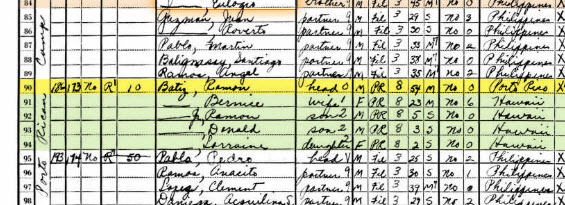 84 Eulogio brother M Fil 3 45 M No 0 Philippines
85 Guzman, Juan partner 9 M Fil 3 29 S No 3 Philippines
86 , Roverto partner 9 M Fil 3 30 S No 0 Philippines
87 Pablo, Martin partner 9 M Fil 3 33 No Philippines
88 Santiago partner 9 M Fil 3 M No 0 Philippines
89 Ramos, Angel partner 9 M Fil 3 35 M No 2 Philippines
90 173 No R 10 Batiz, Ramon head 0 M PR 8 54 M No 0 Porto Rico X
91 Bernice wife 1 F PR 8 23 M No 6 Hawaii
92 Jr, Ramon son 2 M PR 8 5 S No 0 Hawaii
93 , Donald son 2 M PR 8 3 S No 0 Hawaii
94 , Lorraine daughter 2 F PR 8 2 S No 0 Hawaii
95 174 No R 50 Pablo, Pedro head M Fil 3 25 S No 2 Philippines X
96 Ramos, Anacito partner 9 M Fil 3 30 S No 1 Philippines X
97 Lopez, Clement partner 9 M Fil 3 39 No 0 Philippines X
98 partner 9 M Fil 3 29 S No 2 Philippines X
Camp
Porto Rican